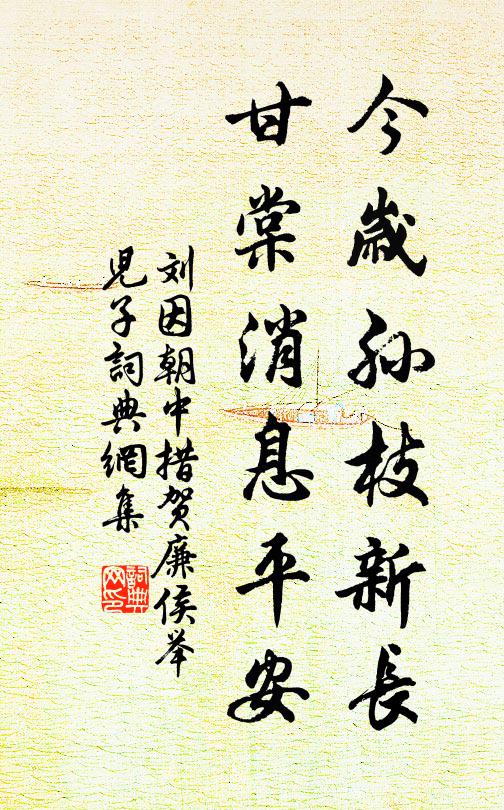 今歲孙枝新長
甘棠消息平安
刘因朝中措贺廉侯举
児子詞典網集
詞典网印